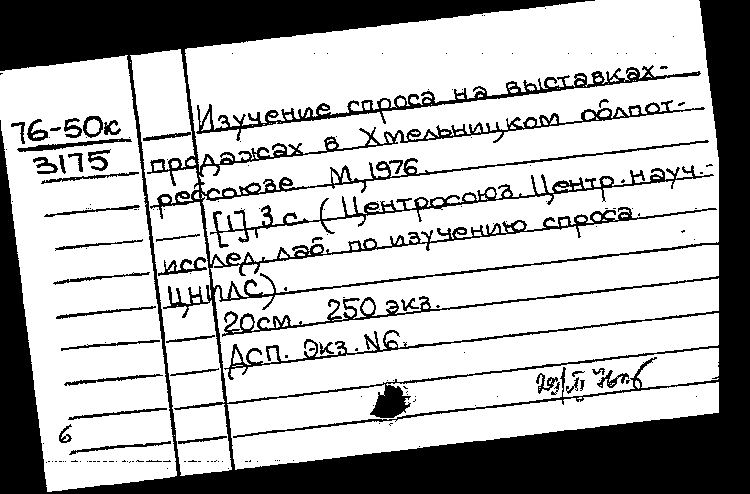 76-50к
3175
Изучение спроса на выставках-
продажах в Хмельницком облпот-
ребсоюзе. М., 1976.
[1], 3 с. (Центросоюз. Центр. науч.-
исслед. лаб. по изучению спроса.
ЦНИЛС).
20см. 250 экз.
ДСП. Экз. N6.
6